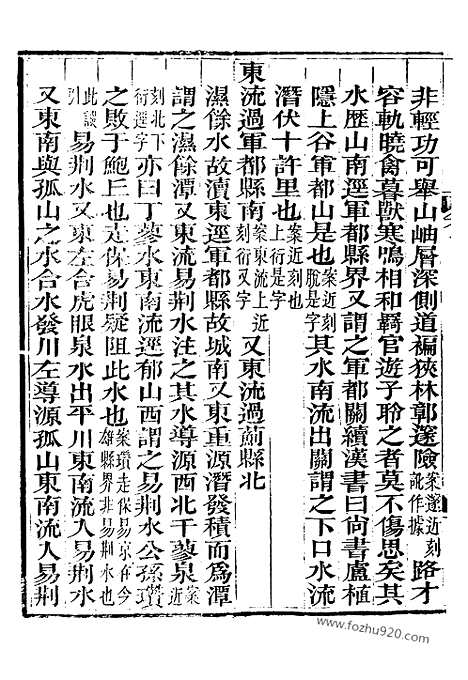 非輕功可舉山岫層深側道褊狹林郭邃險案邃近刻訛作據路才
容軌曉禽暮獸寒鳴相和羇官遊子聆之者莫不傷思矣其
水歷山南逕軍都縣界又謂之軍都關續漢書曰尚書盧植
隱上谷軍都山是也案近刻脫是字其水南流出關謂之下口水流
潛伏十許里也案近刻也上衍是字
東流過軍都縣南案東流上近刻衍又字又東流過薊縣北
濕餘水故瀆東逕軍都縣故城南又東重源潛發積而爲潭
謂之濕餘潭又東流易荆水注之其水導源西北千蓼泉案近
刻下衍逕字亦曰丁蓼水東南流逕郁山西謂之易荆水公孫瓚
之敗于鮑丘也走保易荆疑阻此水也案瓚走保易京在今雄縣界非易荆水也
此誤引易荆水又東左合虎眼泉水出平川東南流入易荆水
又東南與孤山之水合水發川左導源孤山東南流入易荆
www.fozhu920.com